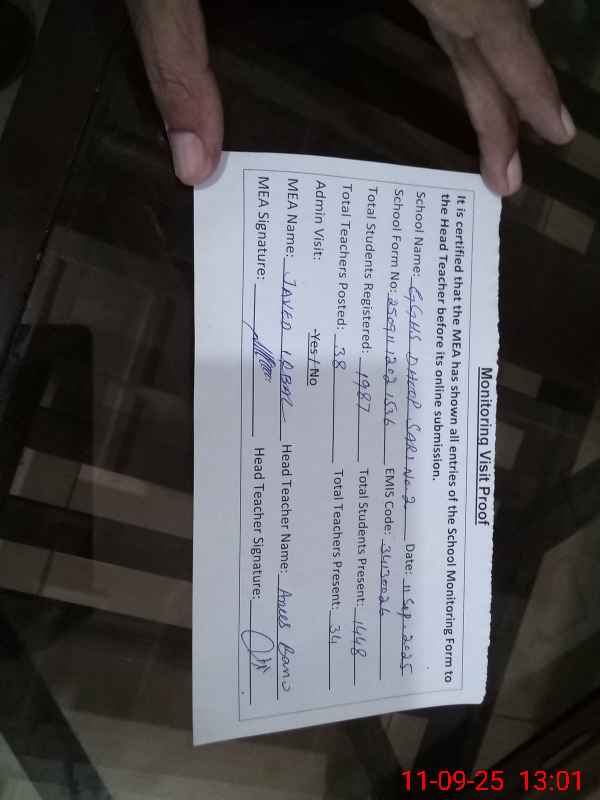 Monitoring Visit Proof
It is certified that the MEA has shown all entries of the School Monitoring Form to
the Head Teacher before its online submission.
School Name: GGHS DHOOP SARI No. 2 Date: 11 Sep. 2025
School Form No: 25091112021536 EMIS Code: 34130026
Total Students Registered: 1987 Total Students Present: 1448
Total Teachers Posted: 38 Total Teachers Present: 34
Admin Visit: -Yes / No
MEA Name: JAVED IQBAL Head Teacher Name: Anees Bano
MEA Signature: Head Teacher Signature:
11-09-25 13:01